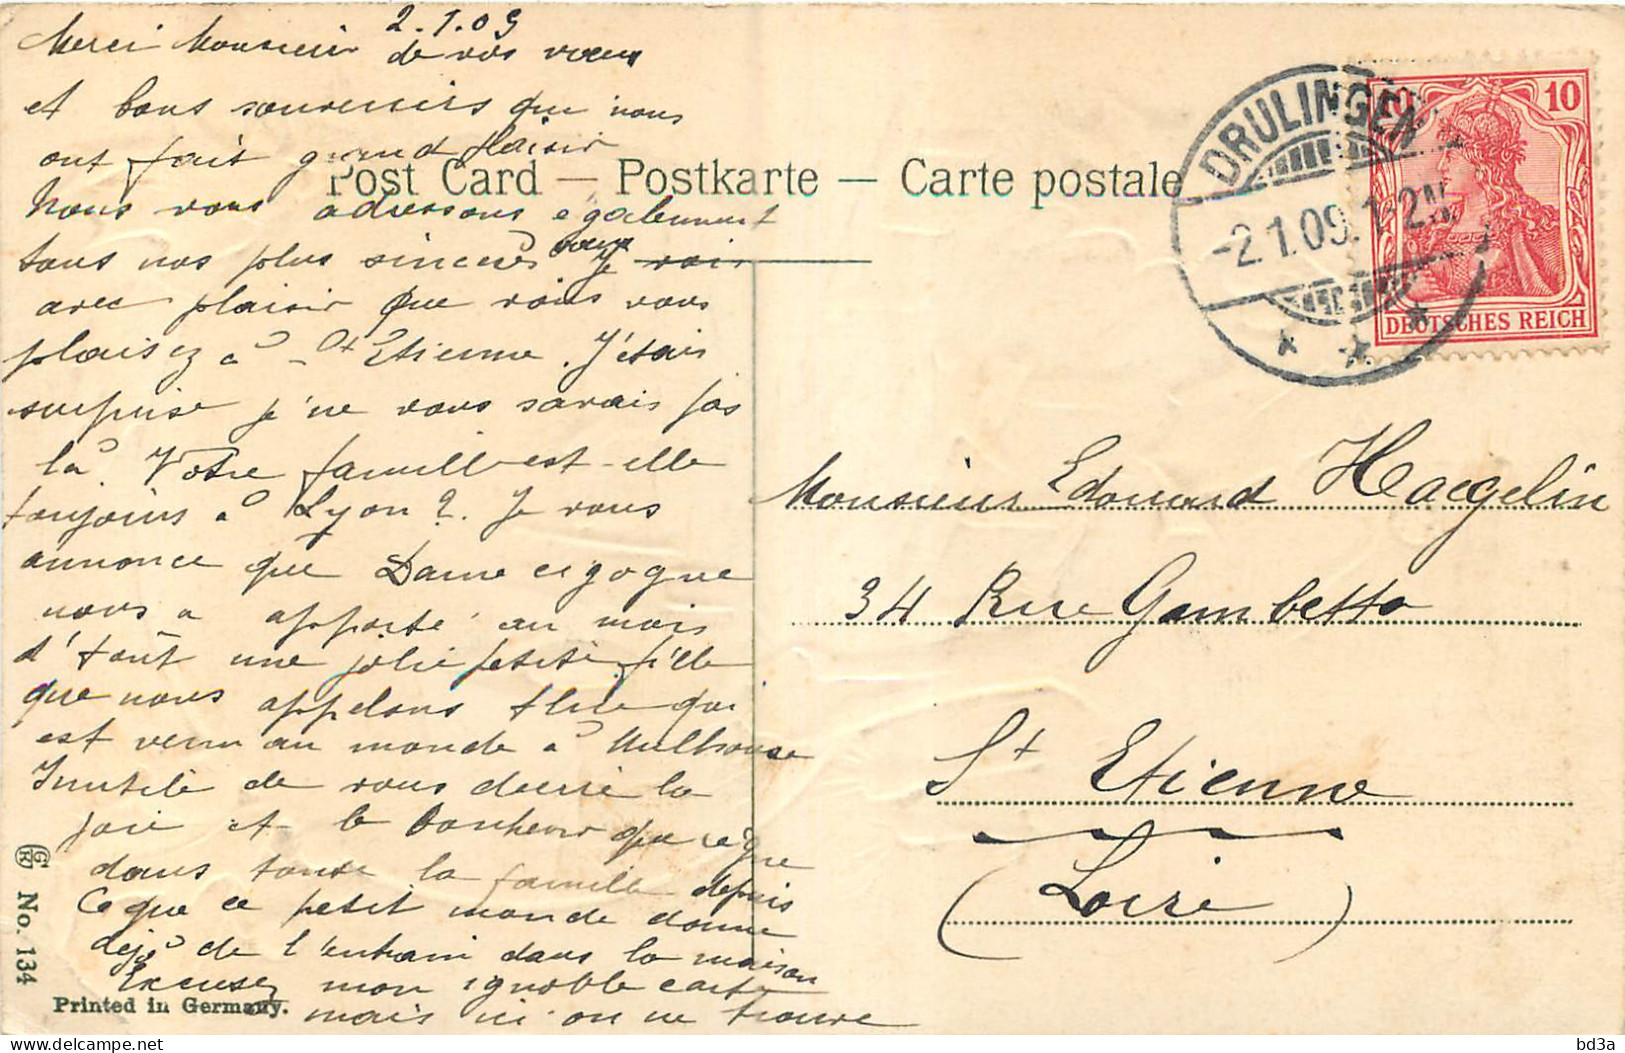 2.1.09
Merci Monsieur de vos vœux
et bons souvenirs qui nous
ont fait grand plaisir
Post Card — Postkarte — Carte postale
Nous vous adressons également
tous nos plus sincères vœux
Je vois
avec plaisir que vous vous
plaisez à St Etienne. J'étais
surprise je ne vous savais pas
là. Votre famille est-elle
toujours à Lyon ?. Je vous
annonce que Dame cigogne
nous a apporté au mois
d'août une jolie petite fille
que nous appelons qui
est venu au monde à Mulhouse
Inutile de vous decrire la
joie et le bonheur que règne
dans toute la famille depuis
Ce que ce petit monde donne
déjà de l'entrain dans la maison
Excusez mon ignoble carte
mais ici on ne trouve
GR No. 134
Printed in Germany.
DRULINGEN
-2.1.09.1-2N.
10
DEUTSCHES REICH
Monsieur Edouard Haegelin
34 Rue Gambetta
St Etienne
(Loire)
bd3a